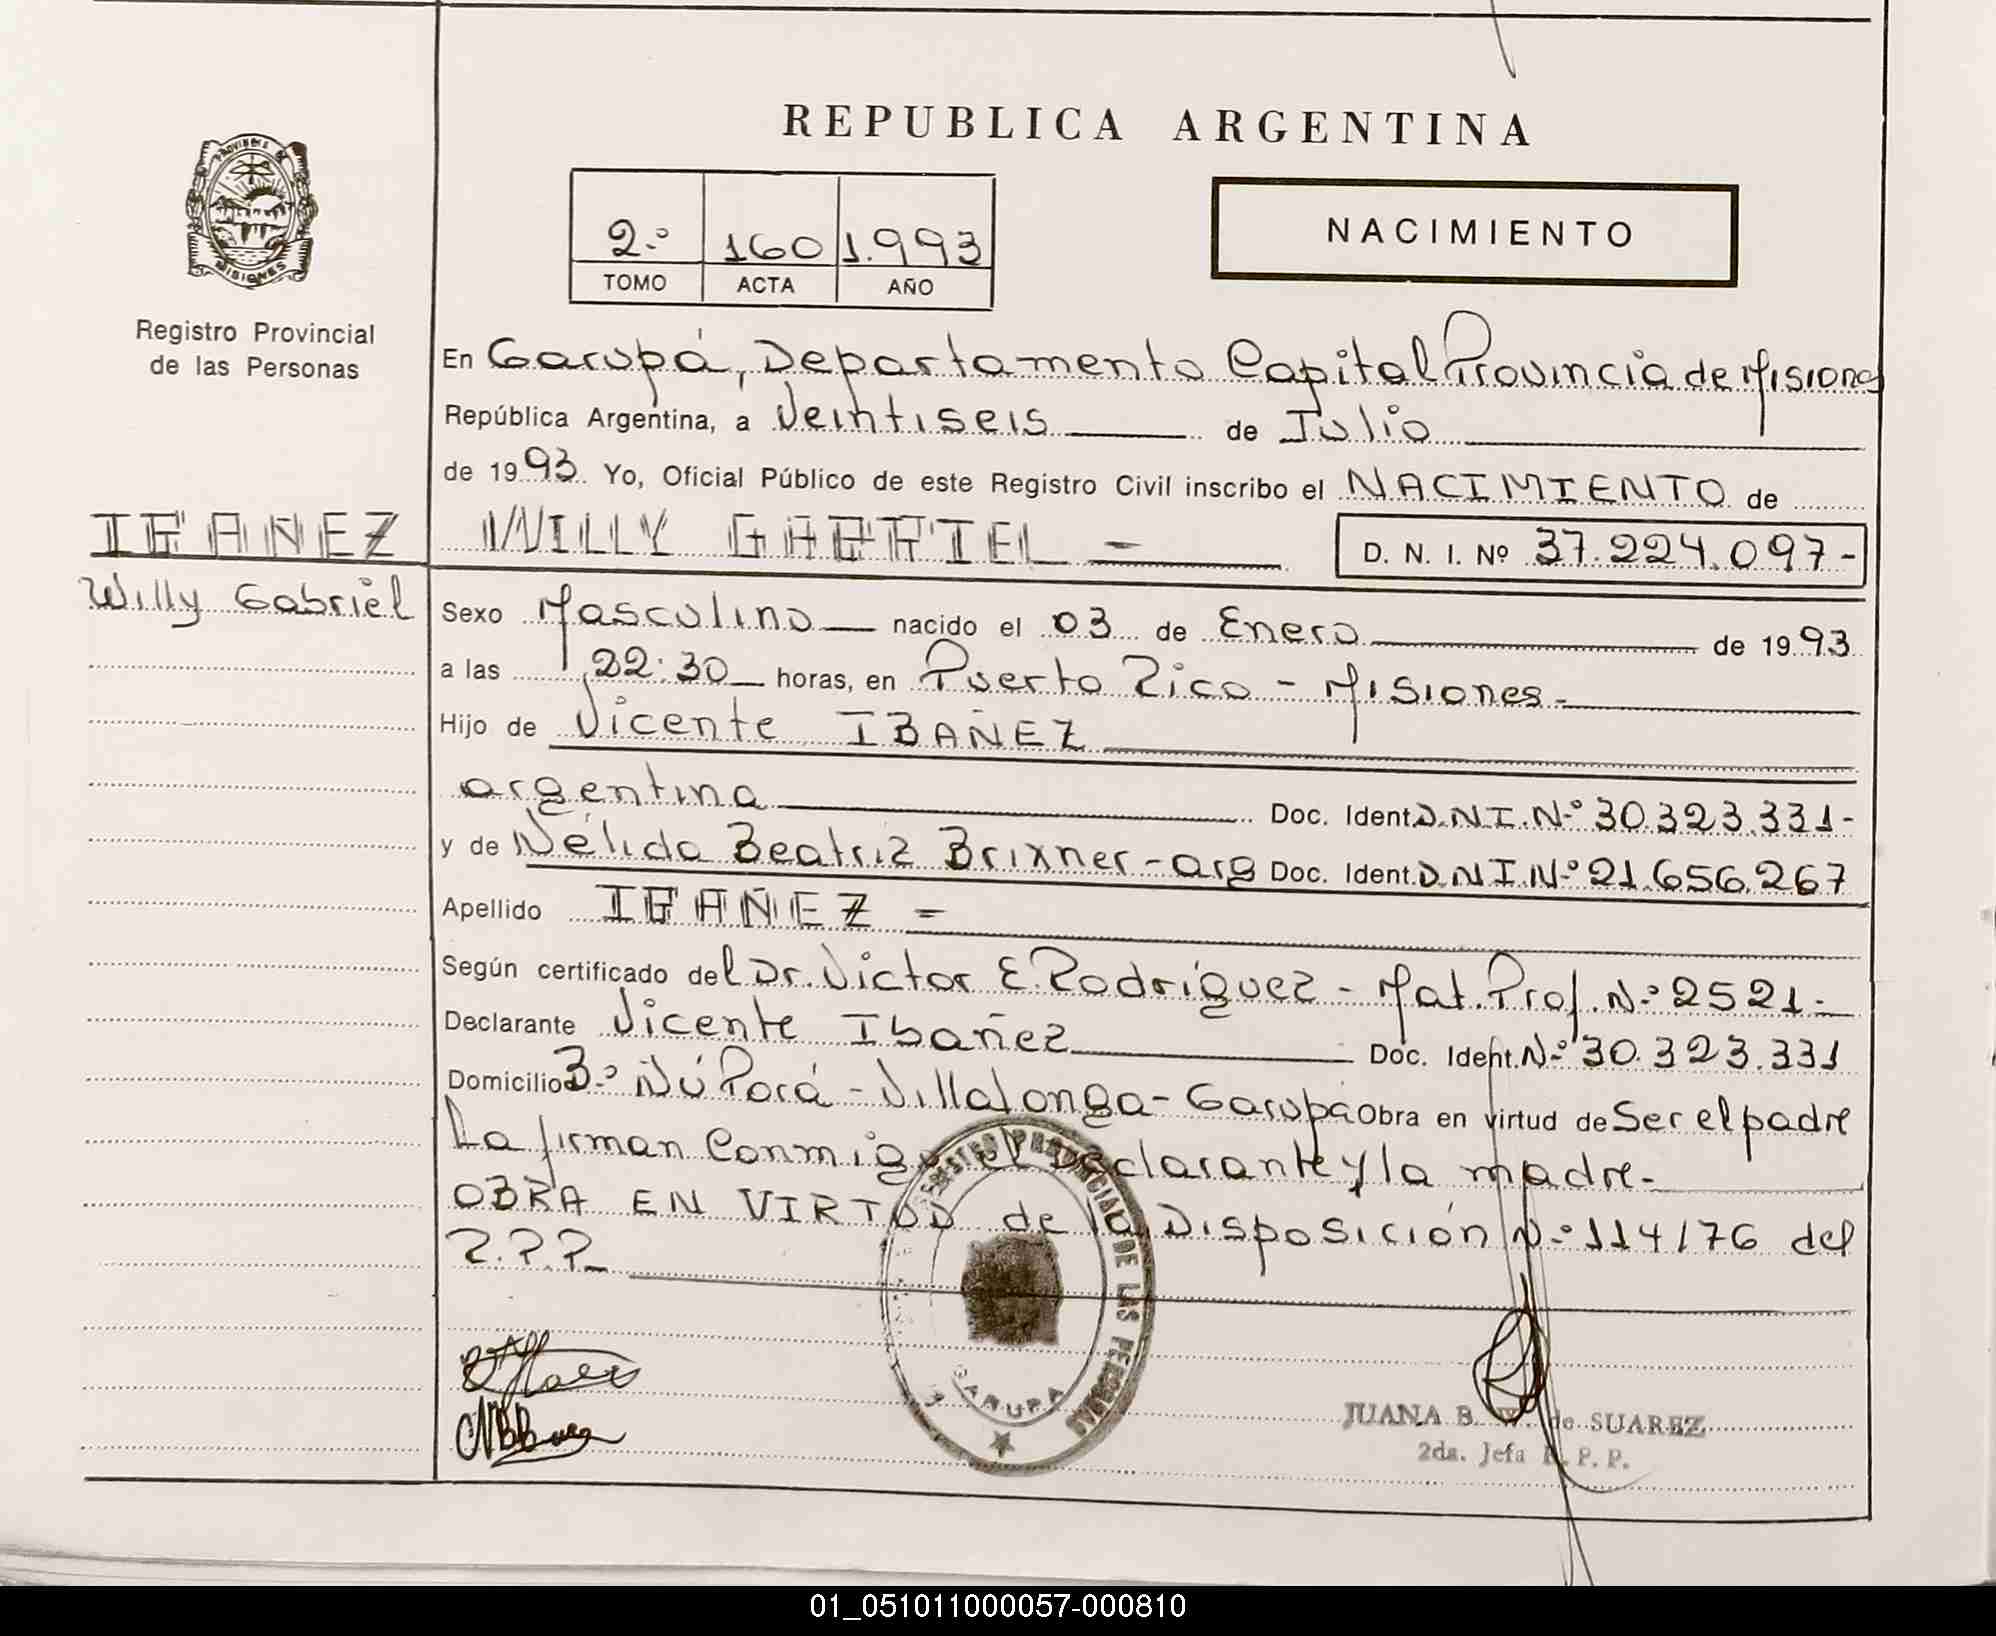 REPUBLICA ARGENTINA
PROVINCIA DE
MISIONES
Registro Provincial
de las Personas
2.º 160 1.993
TOMO ACTA AÑO
NACIMIENTO
En Garupá, Departamento Capital Provincia de Misiones
República Argentina, a Veintiseis de Julio
de 1993. Yo, Oficial Público de este Registro Civil inscribo el NACIMIENTO de
IBAÑEZ WILLY GABRIEL - D. N. I. Nº 37.224.097-
Willy Gabriel
Sexo Masculino nacido el 03 de Enero de 1993
a las 22:30 horas, en Puerto Rico - Misiones-
Hijo de Vicente IBAÑEZ
argentina Doc. Ident. D.N.I.N.º 30.323.331-
y de Nélida Beatriz Brixner - arg Doc. Ident. D.N.I.N.º 21.656.267
Apellido IBAÑEZ -
Según certificado del Dr. Victor E. Rodríguez - Mat. Prof. N.º 2521-
Declarante Vicente Ibañez Doc. Ident. N.º 30.323.331
Domicilio B.º Ñú Porá - Villalonga - Garupá Obra en virtud de Ser el padre
La firman Conmigo el Declarante y la madre.
OBRA EN VIRTUD de la Disposición N.º 114/76 del
R.P.P.
REGISTRO PROVINCIAL DE LAS PERSONAS
GARUPA
JUANA B. W. de SUAREZ
2da. Jefa R. P. P.
01_051011000057-000810